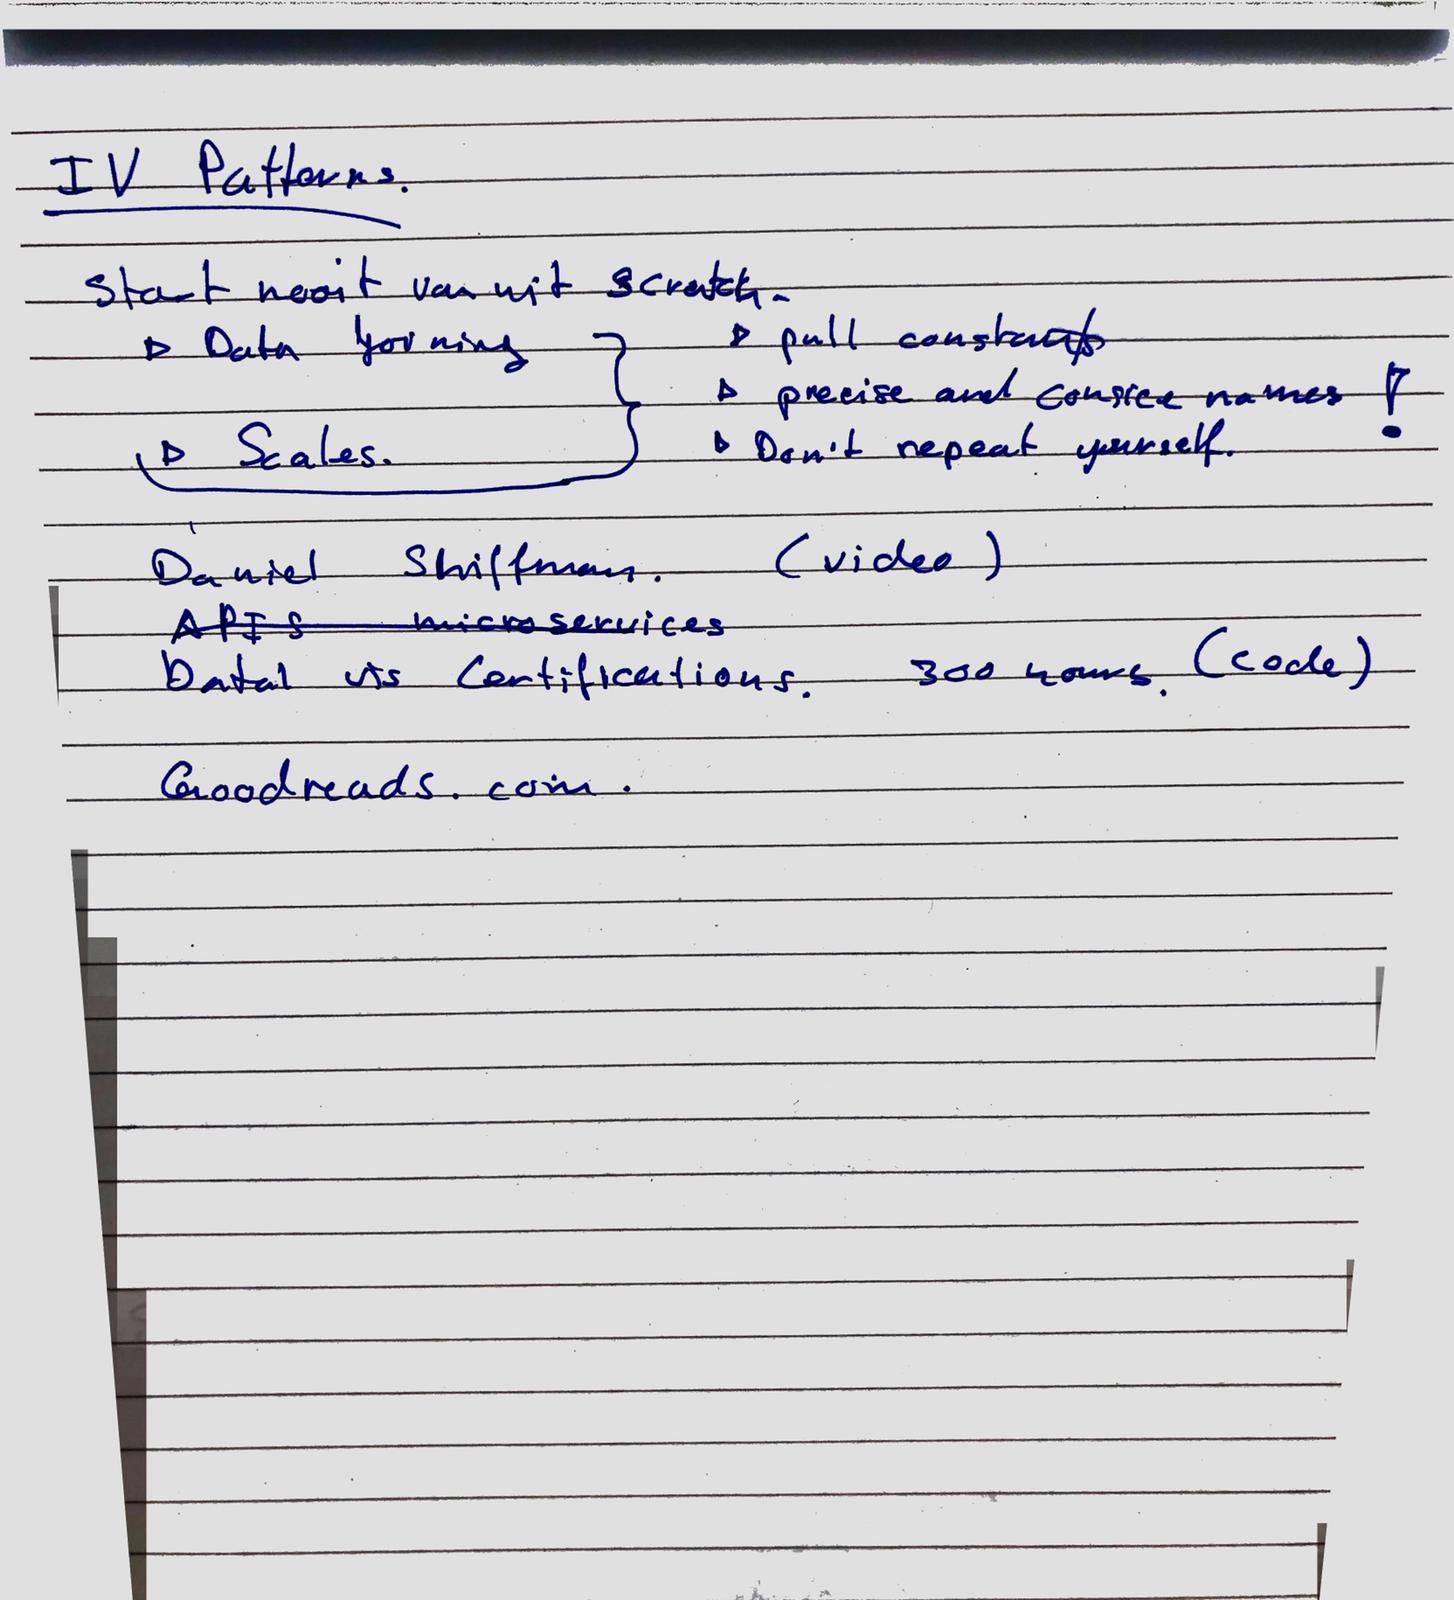 IV Patterns.
Start nooit vanuit scratch.
▷ Data Joining
▷ pull constants
▷ precise and concise names !
▷ Scales.
▷ Don't repeat yourself.
Daniel Shiffman. (video)
APIs microservices
Data vis Certifications. 300 hours. (code)
Goodreads.com.